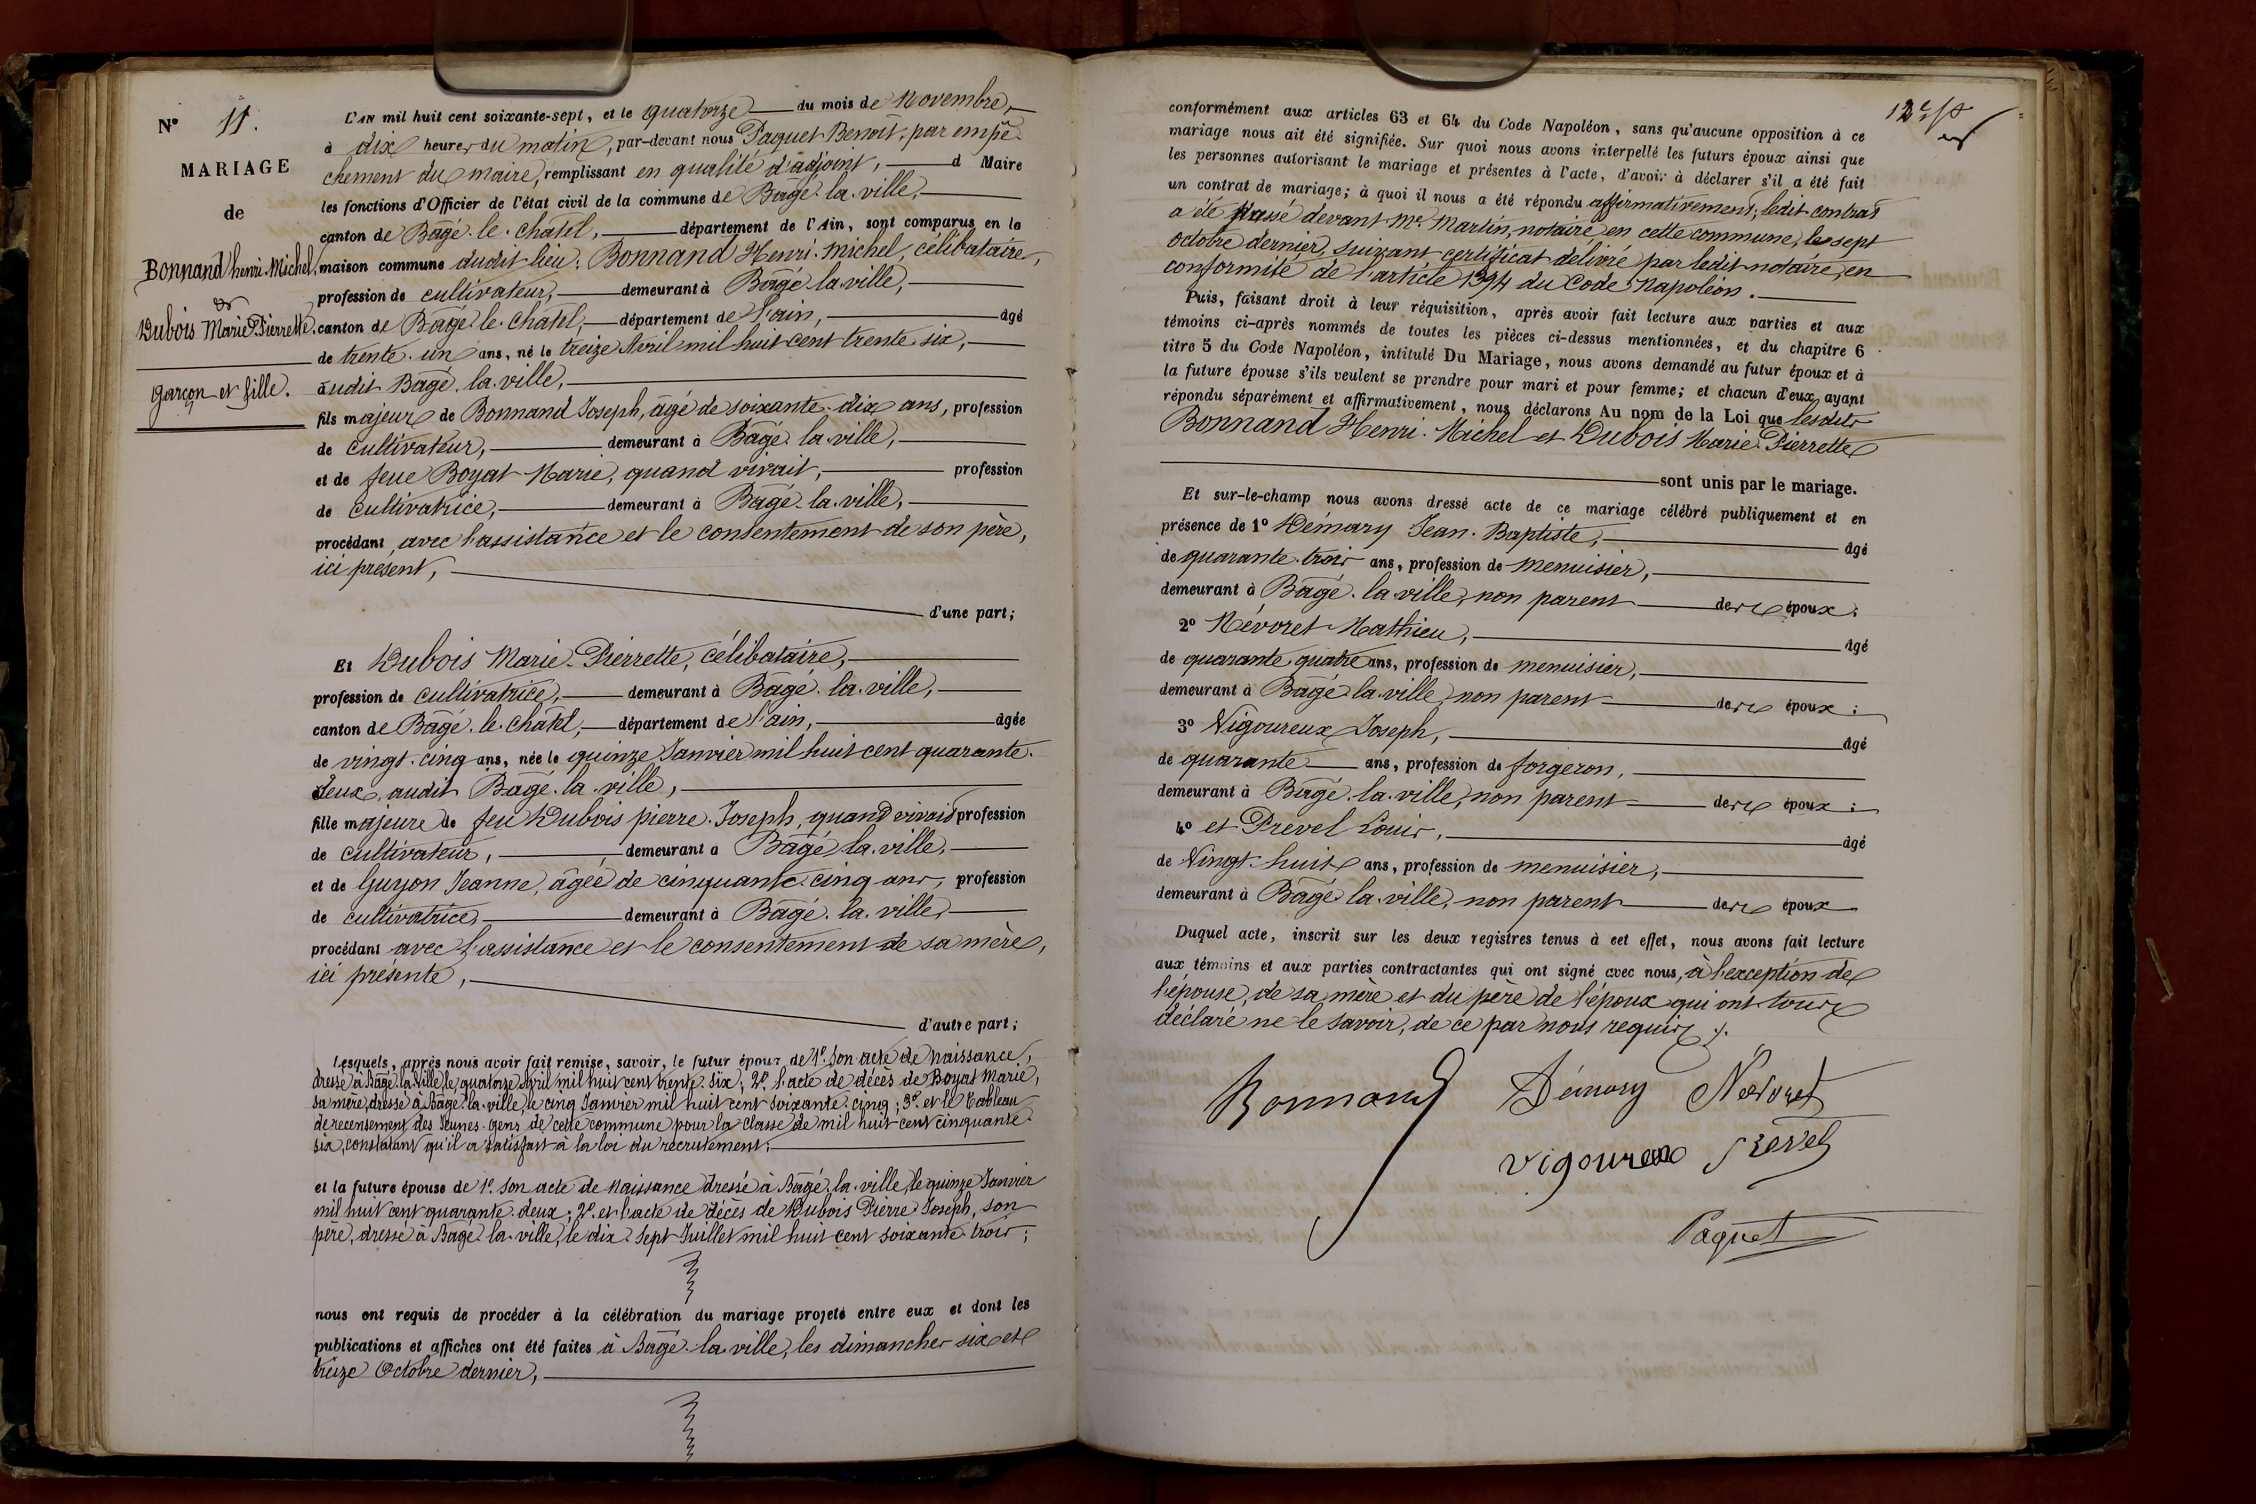 N° 11.
MARIAGE
de
Bonnand henri Michel,
&
Dubois Marie Pierrette.
garçon et fille.
L'AN mil huit cent soixante-sept, et le quatorze du mois de Novembre,
à dix heures du matin, par-devant nous Paquet Benoît, par empê-
chement du maire, remplissant en qualité d'adjoint, d Maire
les fonctions d'Officier de l'état civil de la commune de Bâgé-la-ville,
canton de Bâgé-le-châtel, département de l'Ain, sont comparus en la
maison commune dudit lieu: Bonnand Henri-Michel, célibataire,
profession de cultivateur, demeurant à Bâgé-la-ville,
canton de Bâgé-le-châtel, département de l'ain, âgé
de trente-un ans, né le treize Avril mil huit cent trente-six,
audit Bâgé-la-ville,
fils majeur de Bonnand Joseph, âgé de soixante-dix ans, profession
de cultivateur, demeurant à Bâgé-la-ville,
et de feue Boyat Marie, quand vivait, profession
de cultivatrice, demeurant à Bâgé-la-ville,
procédant avec l'assistance et le consentement de son père,
ici présent,
d'une part;
Et Dubois Marie-Pierrette, célibataire,
profession de cultivatrice, demeurant à Bâgé-la-ville,
canton de Bâgé-le-châtel, département de l'ain, âgée
de vingt-cinq ans, née le quinze Janvier mil huit cent quarante-
deux, audit Bâgé-la-ville,
fille majeure de feu Dubois pierre-Joseph, quand vivait profession
de cultivateur, demeurant à Bâgé-la-ville,
et de Guyon Jeanne, âgée de cinquante-cinq ans, profession
de cultivatrice, demeurant à Bâgé-la-ville,
procédant avec l'assistance et le consentement de sa mère,
ici présente,
d'autre part;
Lesquels, après nous avoir fait remise, savoir, le futur époux de 1°. Son acte de Naissance,
dressé à Bâgé-la-ville, le quatorze Avril mil huit cent trente-six; 2°. l'acte de décès de Boyat Marie,
sa mère, dressé à Bâgé-la-ville, le cinq Janvier mil huit cent soixante-cinq; 3°. et le tableau
de recensement des Jeunes-gens de cette commune pour la classe de mil huit cent cinquante-
six, constatant qu'il a satisfait à la loi du recrutement;
et la future épouse de 1°. Son acte de Naissance dressé à Bâgé-la-ville, le quinze Janvier
mil huit cent quarante-deux; 2°. et l'acte de décès de Dubois Pierre Joseph, son
père, dressé à Bâgé-la-ville, le dix-sept Juillet mil huit cent soixante-trois;
nous ont requis de procéder à la célébration du mariage projeté entre eux et dont les
publications et affiches ont été faites à Bâgé-la-ville, les dimanches six et
treize Octobre dernier,
conformément aux articles 63 et 64 du Code Napoléon, sans qu'aucune opposition à ce
mariage nous ait été signifiée. Sur quoi nous avons interpellé les futurs époux ainsi que
les personnes autorisant le mariage et présentes à l'acte, d'avoir à déclarer s'il a été fait
un contrat de mariage; à quoi il nous a été répondu affirmativement; ledit contrat
a été passé devant Me. Martin, notaire en cette commune, le sept
octobre dernier, suivant certificat délivré par ledit notaire, en
conformité de l'article 1394 du Code Napoléon.
Puis, faisant droit à leur réquisition, après avoir fait lecture aux parties et aux
témoins ci-après nommés de toutes les pièces ci-dessus mentionnées, et du chapitre 6
titre 5 du Code Napoléon, intitulé Du Mariage, nous avons demandé au futur époux et à
la future épouse s'ils veulent se prendre pour mari et pour femme; et chacun d'eux ayant
répondu séparément et affirmativement, nous déclarons Au nom de la Loi que lesdits
Bonnand Henri-Michel et Dubois Marie-Pierrette
sont unis par le mariage.
Et sur-le-champ nous avons dressé acte de ce mariage célébré publiquement et en
présence de 1° Démary Jean-Baptiste, âgé
de quarante-trois ans, profession de menuisier,
demeurant à Bâgé-la-ville, non parent des époux;
2° Névoret Mathieu, âgé
de quarante quatre ans, profession de menuisier,
demeurant à Bâgé-la-ville, non parent des époux;
3° Vigoureux Joseph, âgé
de quarante ans, profession de forgeron,
demeurant à Bâgé-la-ville, non parent des époux;
4° et Prevel Louis, âgé
de Vingt-huit ans, profession de menuisier,
demeurant à Bâgé-la-ville, non parent des époux
Duquel acte, inscrit sur les deux registres tenus à cet effet, nous avons fait lecture
aux témoins et aux parties contractantes qui ont signé avec nous, à l'exception de
l'épouse, de sa mère et du père de l'époux qui ont tous
déclaré ne le savoir, de ce par nous requis.
Bonnand Démary Névoret
Vigoureux Prevel
Paquet